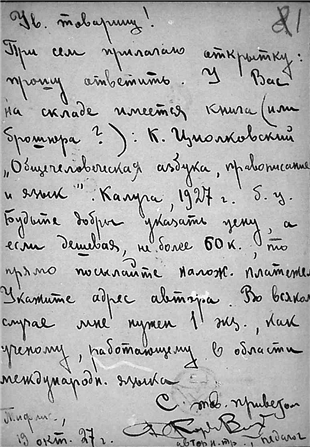 Ув. товарищ!
При сем прилагаю открытку:
прошу ответить. У Вас
на складе имеется книга (или
брошюра?): К. Циолковский
„Общечеловеческая азбука, правописание
и язык". Калуга, 1927 г. б. ц.
Будьте добры указать цену, а
если дешевая, не более 60 к., то
прямо посылайте налож. платежом
Укажите адрес автора. Во всяком
случае мне нужен 1 экз., как
ученому, работающему в области
международн. языка
С тов. приветом
Тифлис,
19 окт. 27 г.
автор н.тр., педагог